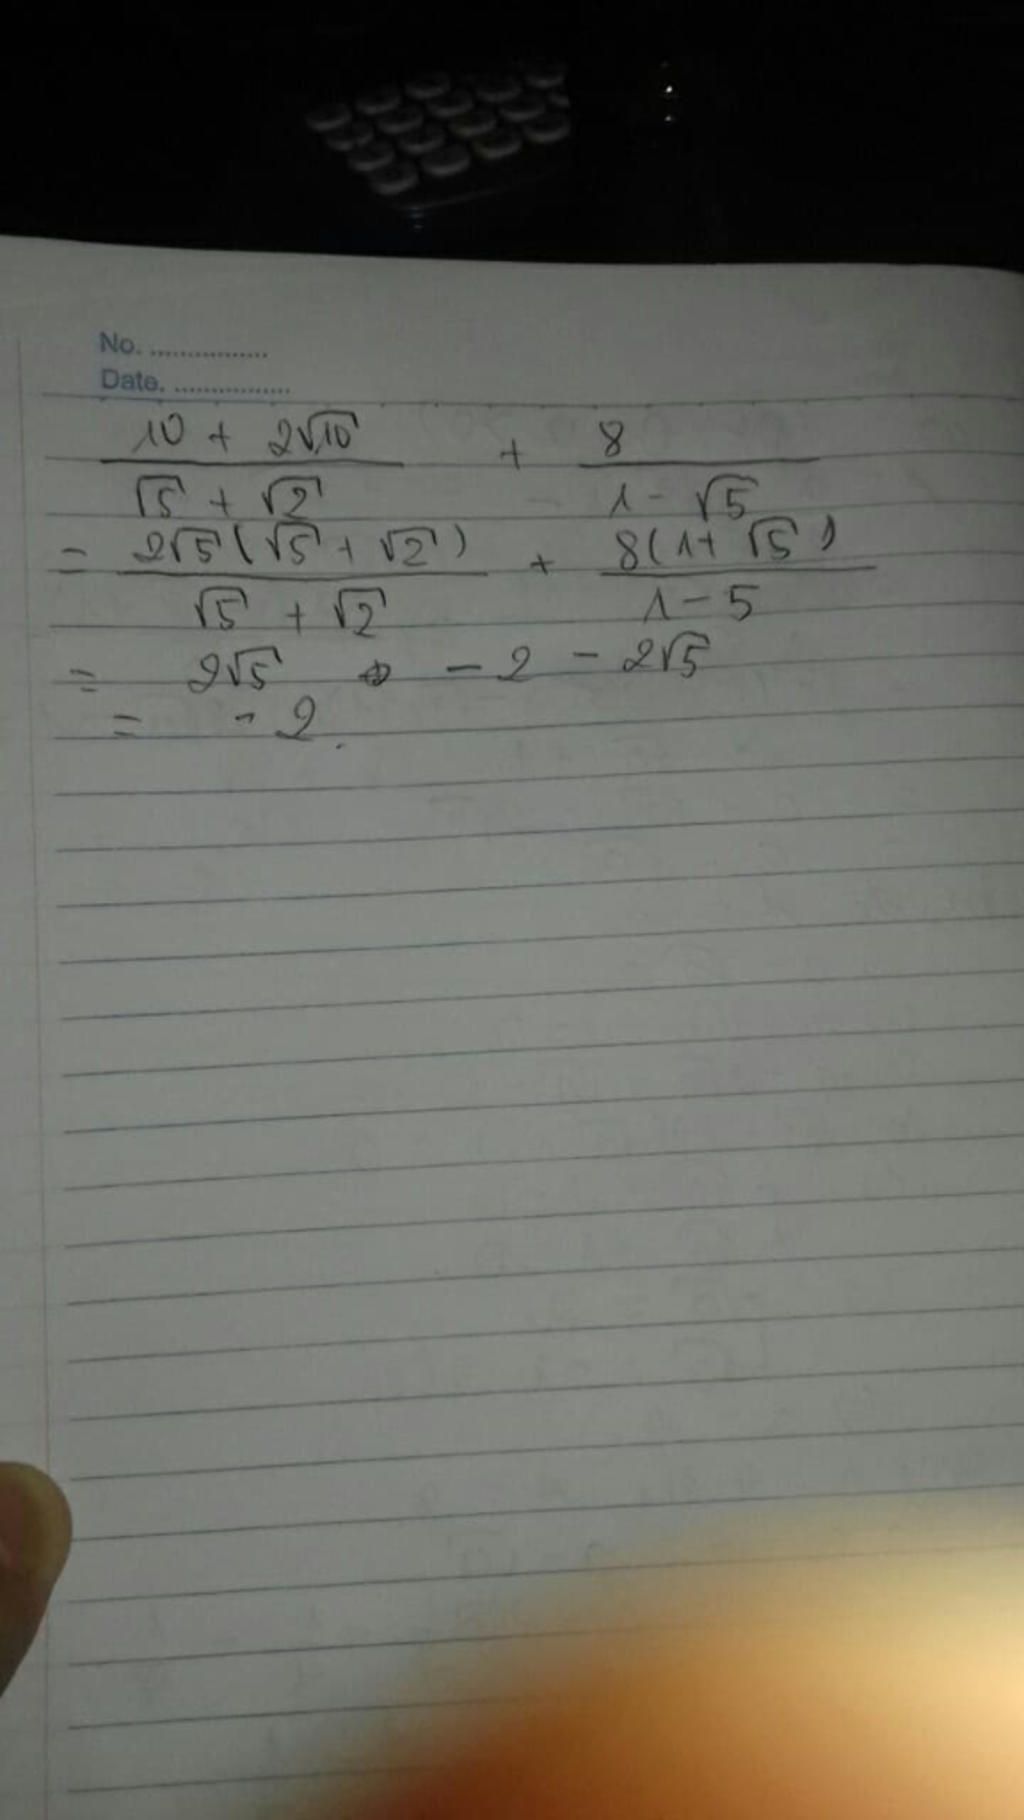 No. ................
Date. ................
(10 + 2√10)/(√5 + √2) + 8/(1 - √5)
= (2√5(√5 + √2))/(√5 + √2) + (8(1 + √5))/(1 - 5)
= 2√5 - 2 - 2√5
= - 2.